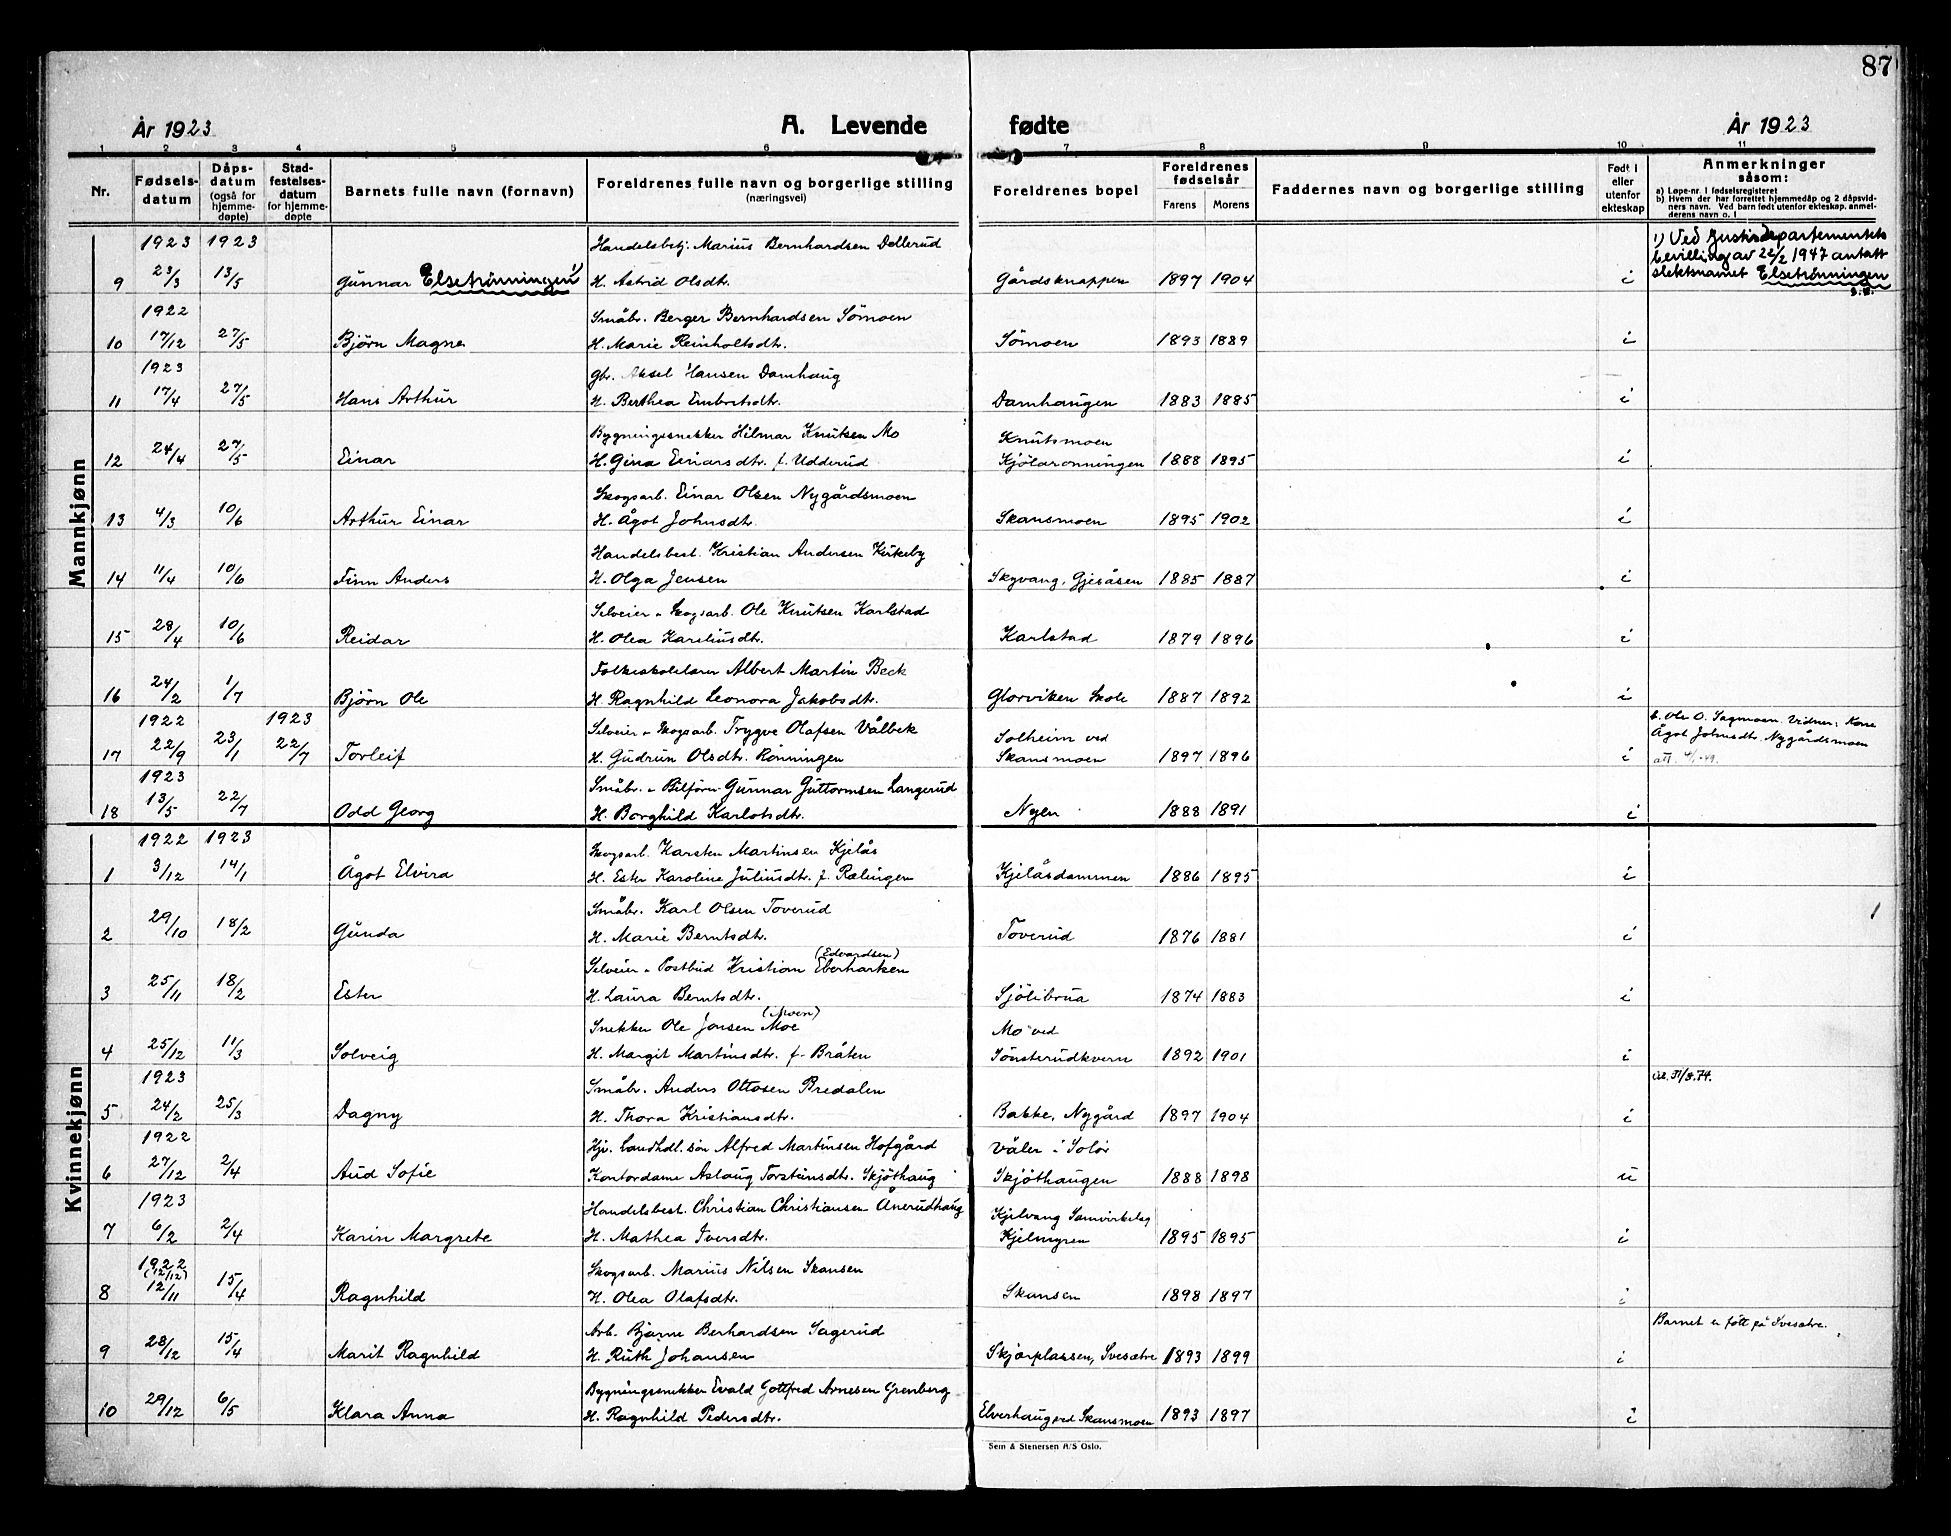 87
År 1923 A. Levende fødte År 1923
1 2 3 4 5 6 7 8 9 10 11
Nr.
Fødsels-
datum
Dåps-
datum
(også for
hjemme-
døpte)
Stad-
festelses-
datum
for hjemme-
døpte
Barnets fulle navn (fornavn)
Foreldrenes fulle navn og borgerlige stilling
(næringsvei)
Foreldrenes bopel
Foreldrenes
fødselsår
Farens Morens
Faddernes navn og borgerlige stilling
Født i
eller
utenfor
ekteskap
Anmerkninger
såsom:
a) Løpe-nr. i fødselsregisteret
b) Hvem der har forrettet hjemmedåp og 2 dåpsvid-
ners navn. Ved barn født utenfor ekteskap, anmel-
derens navn o. l
Mannkjønn
1923 1923 Handelsbetj. Marius Bernhardsen Dellerud
9 23/3 13/5 Gunnar Elsetrønningen 1) H. Astrid Olsdtr. Gårdsknappen 1897 1904 i
1) Ved Justisdepartementets
bevilling av 22/2 1947 antatt
slektsnavnet Elsetrønningen
1922 Småbr. Berger Bernhardsen Sömoen
10 17/12 27/5 Björn Magne H. Marie Reinholtsdtr. Sömoen 1893 1889 i
1923 Gbr. Aksel Hansen Damhaug
11 17/4 27/5 Hans Arthur H. Berthea Embretsdtr. Damhaugen 1883 1885 i
Bygningssnekker Hilmar Knutsen Mo Knutsmoen
12 24/4 27/5 Einar H. Gina Einarsdtr. f. Udderud Kjölaronningen 1888 1895 i
Skogsarb. Einar Olsen Nygårdsmoen
13 4/3 10/6 Arthur Einar H. Ågot Johnsdtr. Skansmoen 1895 1902 i
Handelsbest. Kristian Andersen Kirkeby
14 11/4 10/6 Finn Anders H. Olga Jensen Skyvang, Gjesåsen 1885 1887 i
Selveier - Skogsarb. Ole Knutsen Karlstad
15 28/4 10/6 Reidar H. Olea Karliusdtr. Karlstad 1879 1896 i
Folkeskolelærer Albert Martin Beck
16 24/2 1/7 Björn Ole H. Ragnhild Leonora Jakobsdtr. Glorviken Skole 1887 1892 i
1922 1923 Selveier - Skogsarb. Trygve Olafsen Vålbek Solheim ved
17 22/9 23/1 22/7 Torleif H. Gudrun Olsdtr. Rönningen Skansmoen 1897 1896 i
b. Ole O. Sagmoen. Vidner: Kone
Ågot Johnsdtr. Nygårdsmoen
att. 4/1-49.
1923 Småbr. - Bilförer Gunnar Guttormsen Langerud
18 13/5 22/7 Odd Georg H. Borghild Karlotsdtr. Nyen 1888 1891 i
Kvinnekjønn
1922 1923 Skogsarb. Karsten Martinsen Kjelås
1 3/12 14/1 Ågot Elvira H. Ester Karoline Juliusdtr. f. Rælingen Kjelåsdammen 1886 1895 i
Småbr. Karl Olsen Toverud
2 29/10 18/2 Gunda H. Marie Berntsdtr. Toverud 1876 1881 i
(Edvardsen)
Selveier - Postbud Kristian Eberharken
3 25/11 18/2 Ester H. Laura Berntsdtr. Sjölibrua 1874 1883 i
(Moen)
Snekker Ole Jonsen Moe Mo ved
4 25/12 11/3 Solveig H. Margit Martinsdtr. f. Bråten Sönsterudkvern 1892 1901 i
1923 Småbr. Anders Ottosen Bredalen
5 24/2 25/3 Dagny H. Thora Kristiansdtr. Bakke, Nygård 1897 1904 i
1922 Hjv. Landhdl. sön Alfred Martinsen Hofgård Våler i Solör
6 27/12 2/4 Aud Sofie Kontordame Aslaug Torsteinsdtr. Skjöthaug Skjöthaugen 1888 1898 u
1923 Handelsbest. Christian Christiansen Ånerudhaug Kjelvang Samvirkelag
7 6/2 2/4 Karin Margrete H. Mathea Iversdtr. Kjelmyren 1895 1895 i
1922
(12/12) Skogsarb. Marius Nilsen Skansen
8 12/11 15/4 Ragnhild H. Olea Olafsdtr. Skansen 1898 1897 i
Arb. Bjarne Berhardsen Sagerud Barnet er født på Svesætre.
9 28/12 15/4 Marit Ragnhild H. Ruth Johansen Skjærplassen, Svesætre 1893 1899 i
Bygningssnekker Evald Gottfred Arnesen Grenberg
10 29/12 6/5 Klara Anna H. Ragnhild Pedersdtr. Elverhaug ved Skansmoen 1893 1897 i
Sem & Stenersen A/S Oslo.